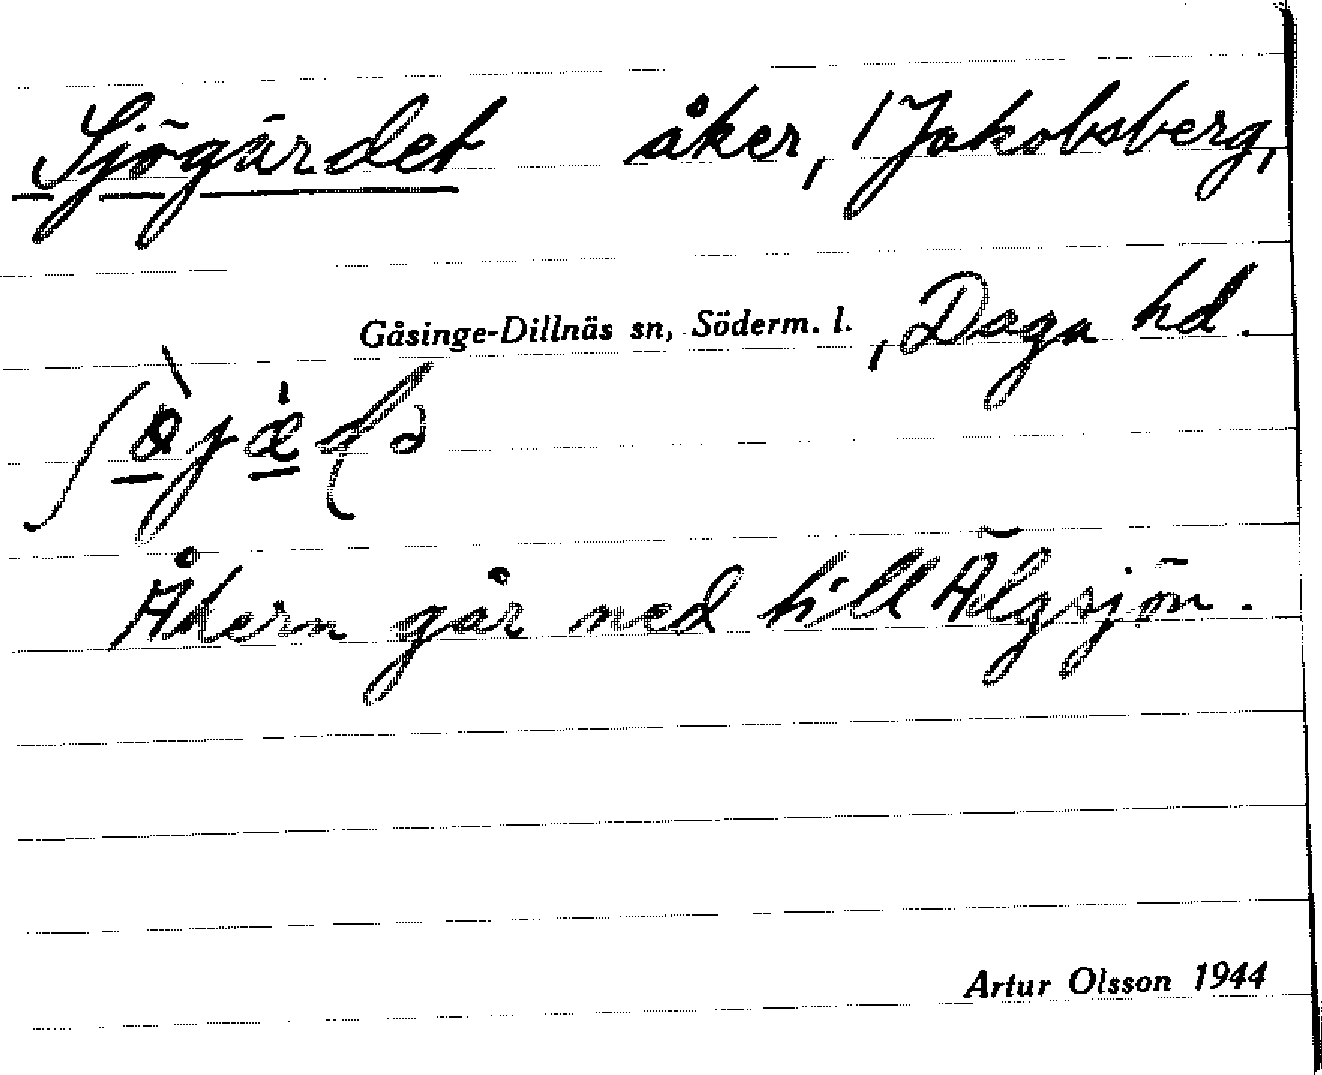 Sjögärdet åker, 1 Jakobsberg,
Gåsinge-Dillnäs sn, Söderm. l., Daga hd.
Åkern går ned till Älgsjön.
Artur Olsson 1944